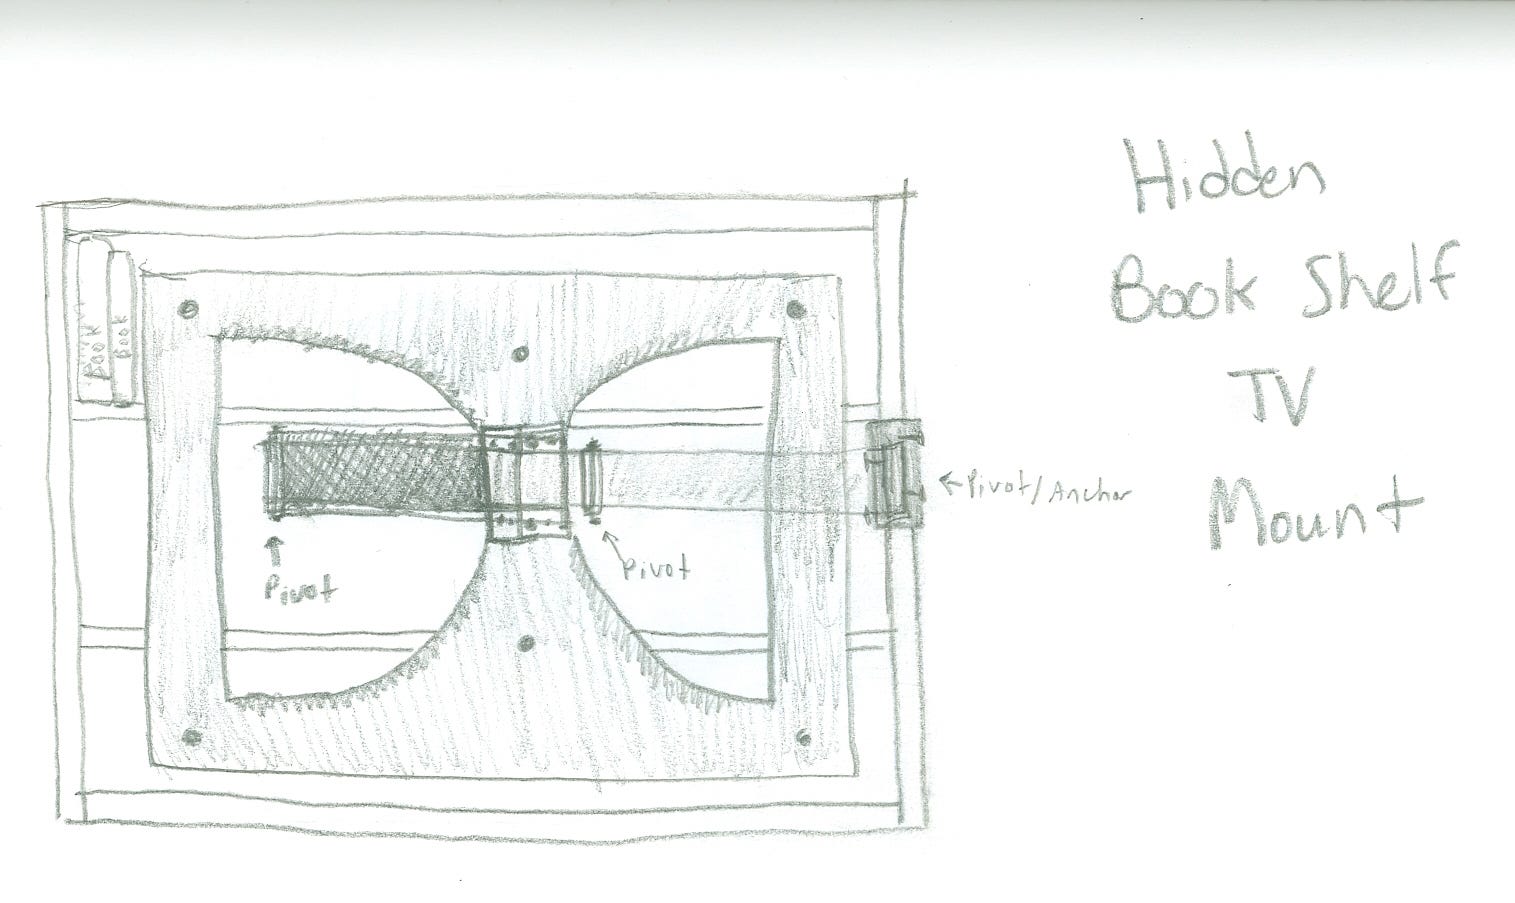 Hidden
Book Shelf
TV
Mount
Book
Book
Pivot/Anchor
Pivot
Pivot